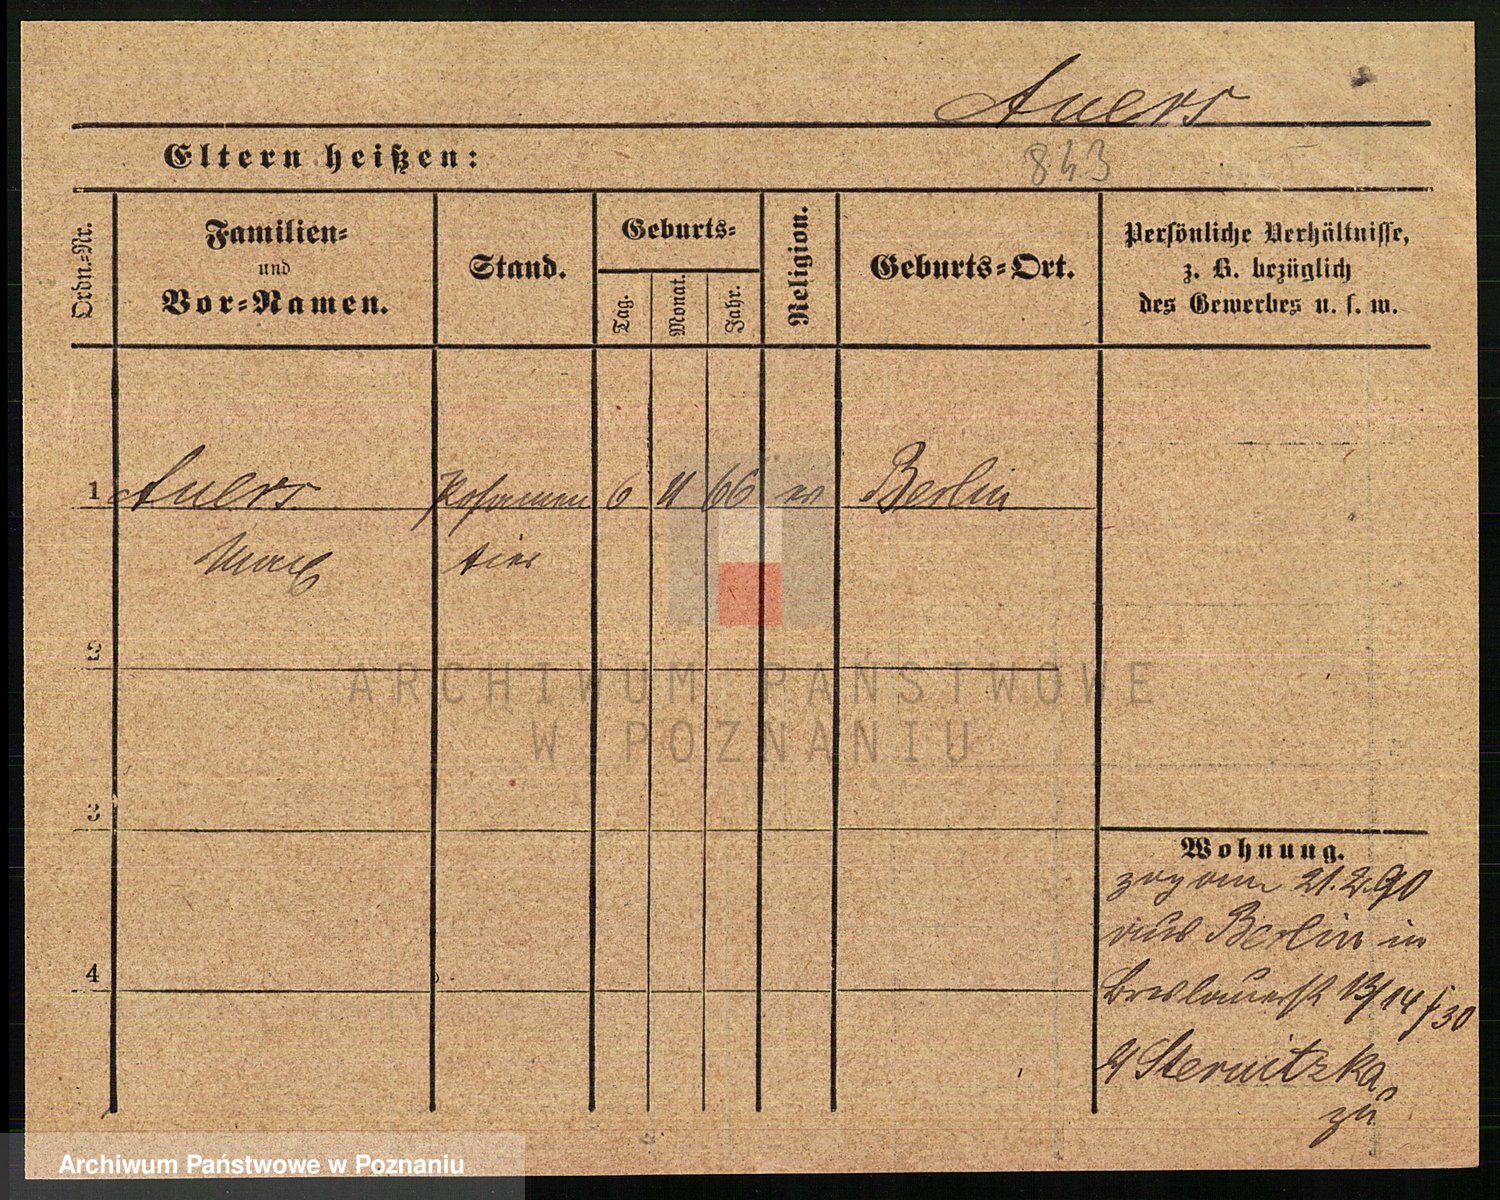 Auers
Eltern heißen:
843
Ordn.-Nr.
Familien-
und
Vor-Namen.
Stand.
Geburts-
Tag.
Monat.
Jahr.
Religion.
Geburts-Ort.
Persönliche Verhältnisse,
z. B. bezüglich
des Gewerbes u. s. w.
1 Auers Posamen 6 11 66 ev Berlin
Max tier
2
3
4
Wohnung.
zog am 21.2.90
aus Berlin in
Breslauerst 13/14 f 30
Sternitzka
zu
ARCHIWUM PAŃSTWOWE
W POZNANIU
Archiwum Państwowe w Poznaniu